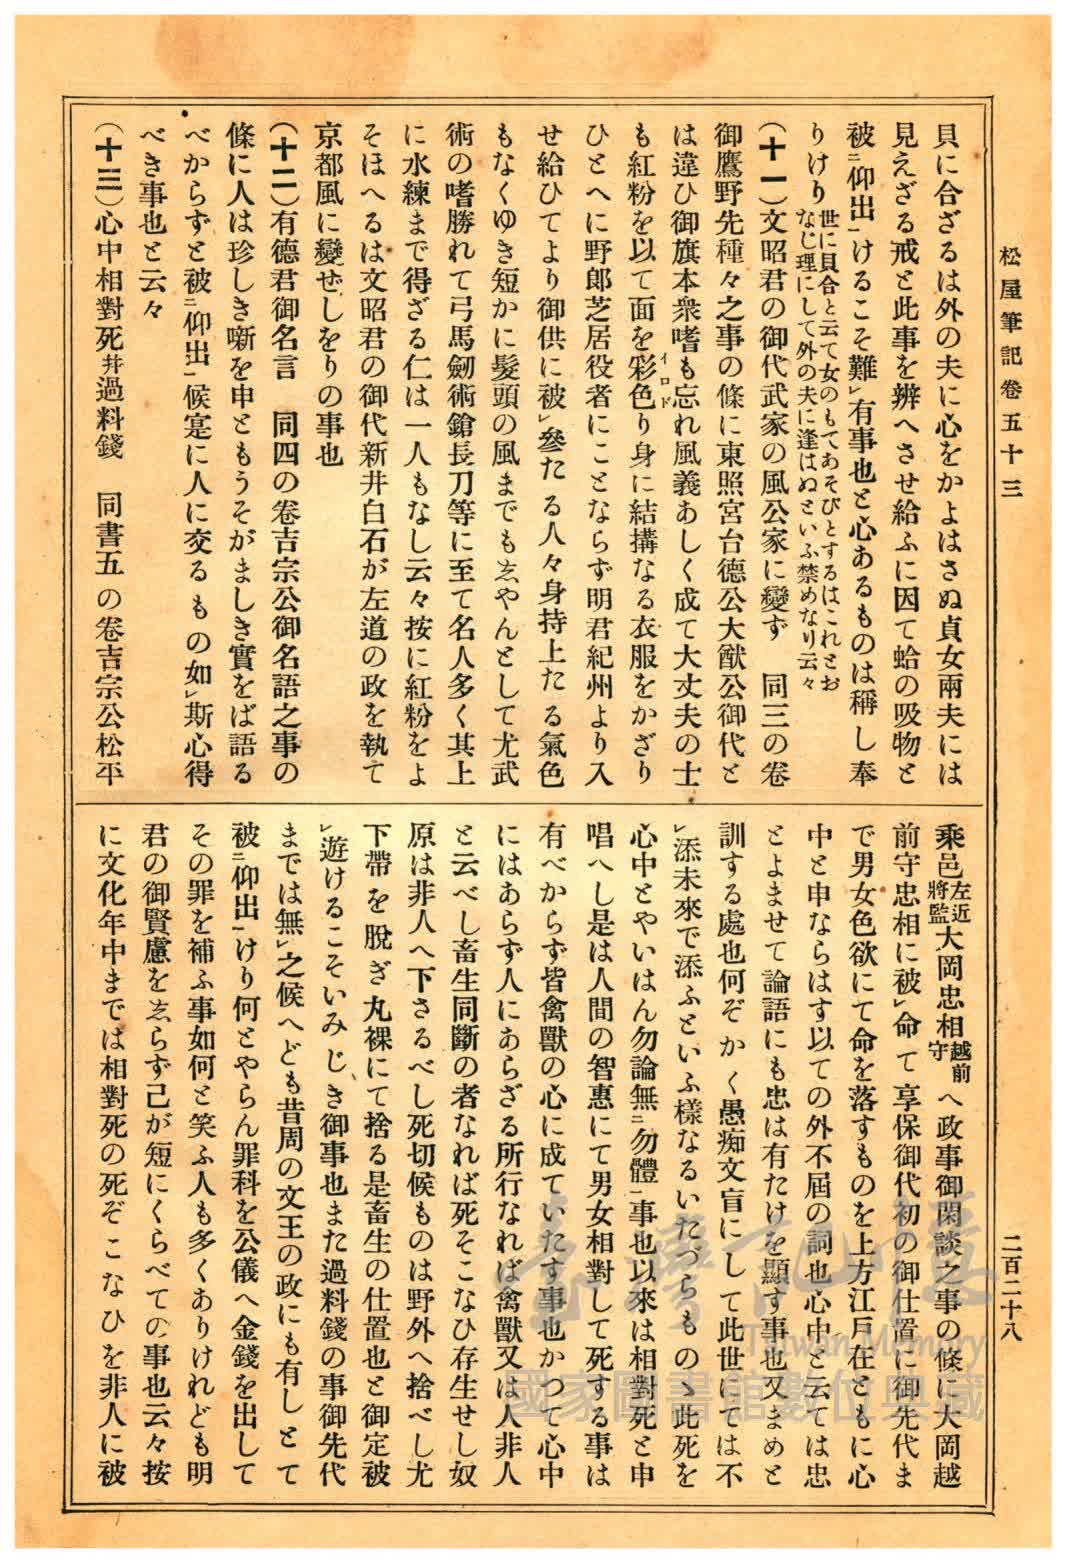 松屋筆記卷五十三
貝に合ざるは外の夫に心をかよはさぬ貞女兩夫には
見えざる戒と此事を辨へさせ給ふに因て蛤の吸物と
被㆓仰出㆒けるこそ難㆑有事也と心あるものは稱し奉
りけり世に貝合と云て女のもてあそびとするはこれとおなじ理にして外の夫に逢はぬといふ禁めなり云々
(十一)文昭君の御代武家の風公家に變ず　同三の卷
御鷹野先種々之事の條に東照宮台德公大猷公御代と
は違ひ御旗本衆嗜も忘れ風義あしく成て大丈夫の士
も紅粉を以て面を彩色り身に結搆なる衣服をかざり
イロド
ひとへに野郎芝居役者にことならず明君紀州より入
せ給ひてより御供に被㆑參たる人々身持上たる氣色
もなくゆき短かに髮頭の風までもゑやんとして尤武
術の嗜勝れて弓馬劒術鎗長刀等に至て名人多く其上
に水練まで得ざる仁は一人もなし云々按に紅粉をよ
そほへるは文昭君の御代新井白石が左道の政を執て
京都風に變ぜしをりの事也
(十二)有德君御名言　同四の卷吉宗公御名語之事の
條に人は珍しき噺を申ともうそがましき實をば語る
べからずと被㆓仰出㆒候寔に人に交るもの如㆑斯心得
べき事也と云々
(十三)心中相對死幷過料錢　同書五の卷吉宗公松平
乘邑左近將監大岡忠相越前守へ政事御閑談之事の條に大岡越
前守忠相に被㆑命て享保御代初の御仕置に御先代ま
で男女色欲にて命を落すものを上方江戶在ともに心
中と申ならはす以ての外不屆の詞也心中と云ては忠
とよませて論語にも忠は有たけを顯す事也又まめと
訓する處也何ぞかく愚痴文盲にして此世にては不
㆑添未來で添ふといふ樣なるいたづらものゝ此死を
心中とやいはん勿論無㆓勿體㆒事也以來は相對死と申
唱へし是は人間の智惠にて男女相對して死する事は
有べからず皆禽獸の心に成ていたす事也かつて心中
にはあらず人にあらざる所行なれば禽獸又は人非人
と云べし畜生同斷の者なれば死そこなひ存生せし奴
原は非人へ下さるべし死切候ものは野外へ捨べし尤
下帶を脫ぎ丸裸にて捨る是畜生の仕置也と御定被
㆑遊けるこそいみじき御事也また過料錢の事御先代
までは無㆑之候へども昔周の文王の政にも有しとて
被㆓仰出㆒けり何とやらん罪科を公儀へ金錢を出して
その罪を補ふ事如何と笑ふ人も多くありけれども明
君の御賢慮をゑらず己が短にくらべての事也云々按
に文化年中までは相對死の死ぞこなひを非人に被
二百二十八
臺灣記憶
Taiwan Memory
國家圖書館數位典藏